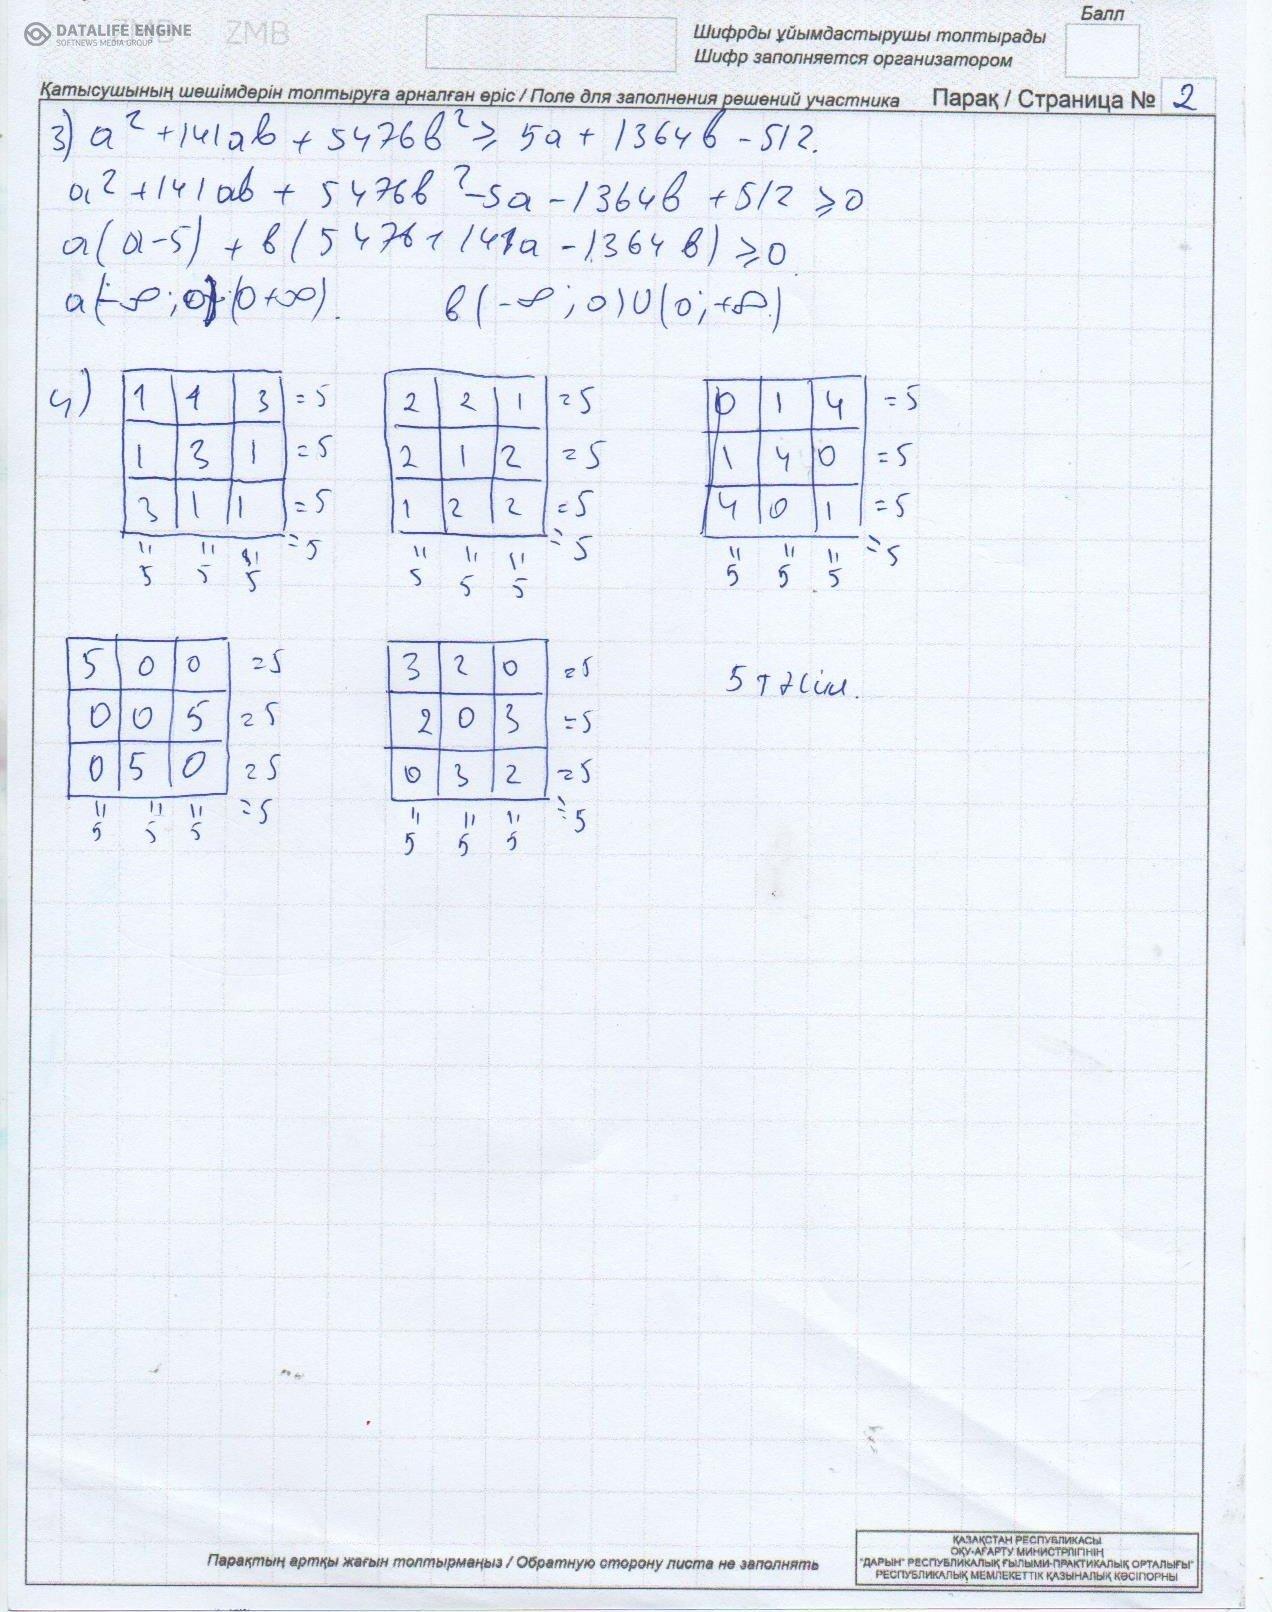 DATALIFE ENGINE
SOFTNEWS MEDIA GROUP
ZMB ZMB
Балл
Шифрды ұйымдастырушы толтырады
Шифр заполняется организатором
Қатысушының шешімдерін толтыруға арналған өріс / Поле для заполнения решений участника Парақ / Страница № 2
3) a² + 141ab + 5476b² ≥ 5a + 1364b - 512.
a² + 141ab + 5476b² - 5a - 1364b + 512 ≥ 0
a(a-5) + b(5476 + 141a - 1364b) ≥ 0
a(-∞; 0) (0+∞). b(-∞; 0)U(0; +∞)
4) 1 1 3 = 5 2 2 1 = 5 0 1 4 = 5
1 3 1 = 5 2 1 2 = 5 1 4 0 = 5
3 1 1 = 5 1 2 2 = 5 4 0 1 = 5
= 5 = 5 = 5
5 5 5 5 5 5 5 5 5
5 0 0 = 5 3 2 0 = 5 5 тәсіл.
0 0 5 = 5 2 0 3 = 5
0 5 0 = 5 0 3 2 = 5
= 5 = 5
5 5 5 5 5 5
Парақтың артқы жағын толтырмаңыз / Обратную сторону листа не заполнять
ҚАЗАҚСТАН РЕСПУБЛИКАСЫ
ОҚУ-АҒАРТУ МИНИСТРЛІГІНІҢ
"ДАРЫН" РЕСПУБЛИКАЛЫҚ ҒЫЛЫМИ-ПРАКТИКАЛЫҚ ОРТАЛЫҒЫ"
РЕСПУБЛИКАЛЫҚ МЕМЛЕКЕТТІК ҚАЗЫНАЛЫҚ КӘСІПОРНЫ